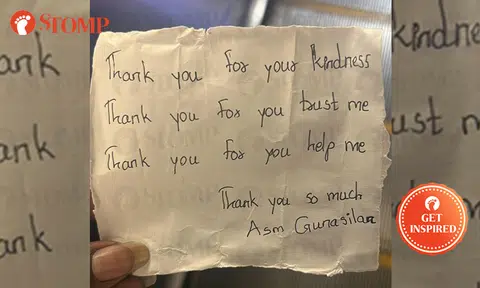 STOMP
Thank you for your kindness
Thank you for you trust me
Thank you for you help me
Thank you so much
Asm Gunasilan
GET
INSPIRED
ank
ank
ank
kindness
ust m